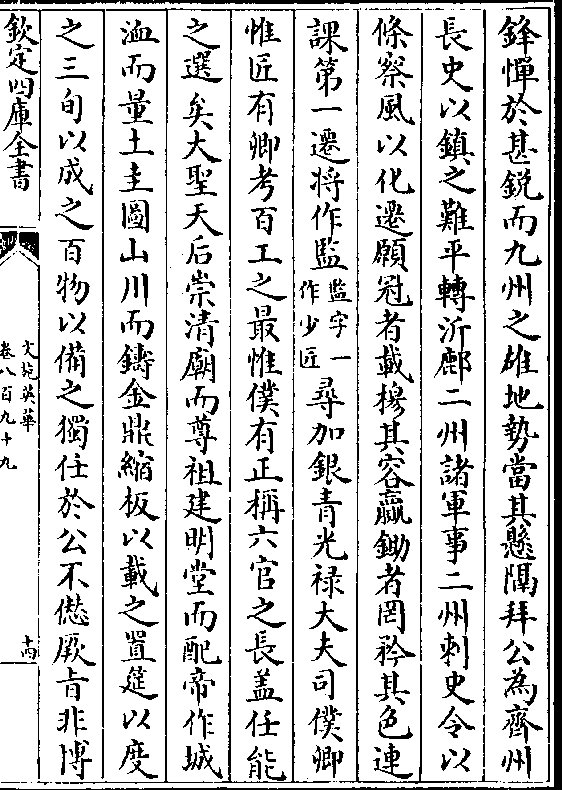 鋒憚於甚銳而九州之雄地勢當其懸隔拜公為齊州
長史以鎮之難平轉沂鄜二州諸軍事二州刺史令以
條察風以化遷願冠者載揚其容羸鋤者罔矜其色連
課第一遷將作監監字一作少匠尋加銀青光祿大夫司僕卿
惟匠有卿考百工之最惟僕有正稱六官之長盖任能
之選矣大聖天后崇清廟而尊祖建明堂而配帝作城
洫而量土圭圖山川而鑄金鼎縮板以載之置筳以度
之三旬以成之百物以備之獨任於公不愆厥旨非博
欽定四庫全書
文苑英華
卷八百九十九
十四